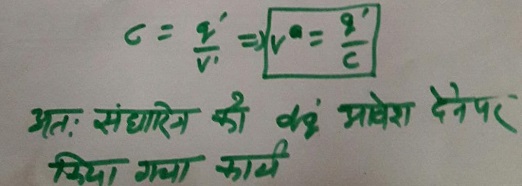 C = q'/V' ⇒ V' = q'/C
अतः संधारित्र को dq' आवेश देने पर
किया गया कार्य